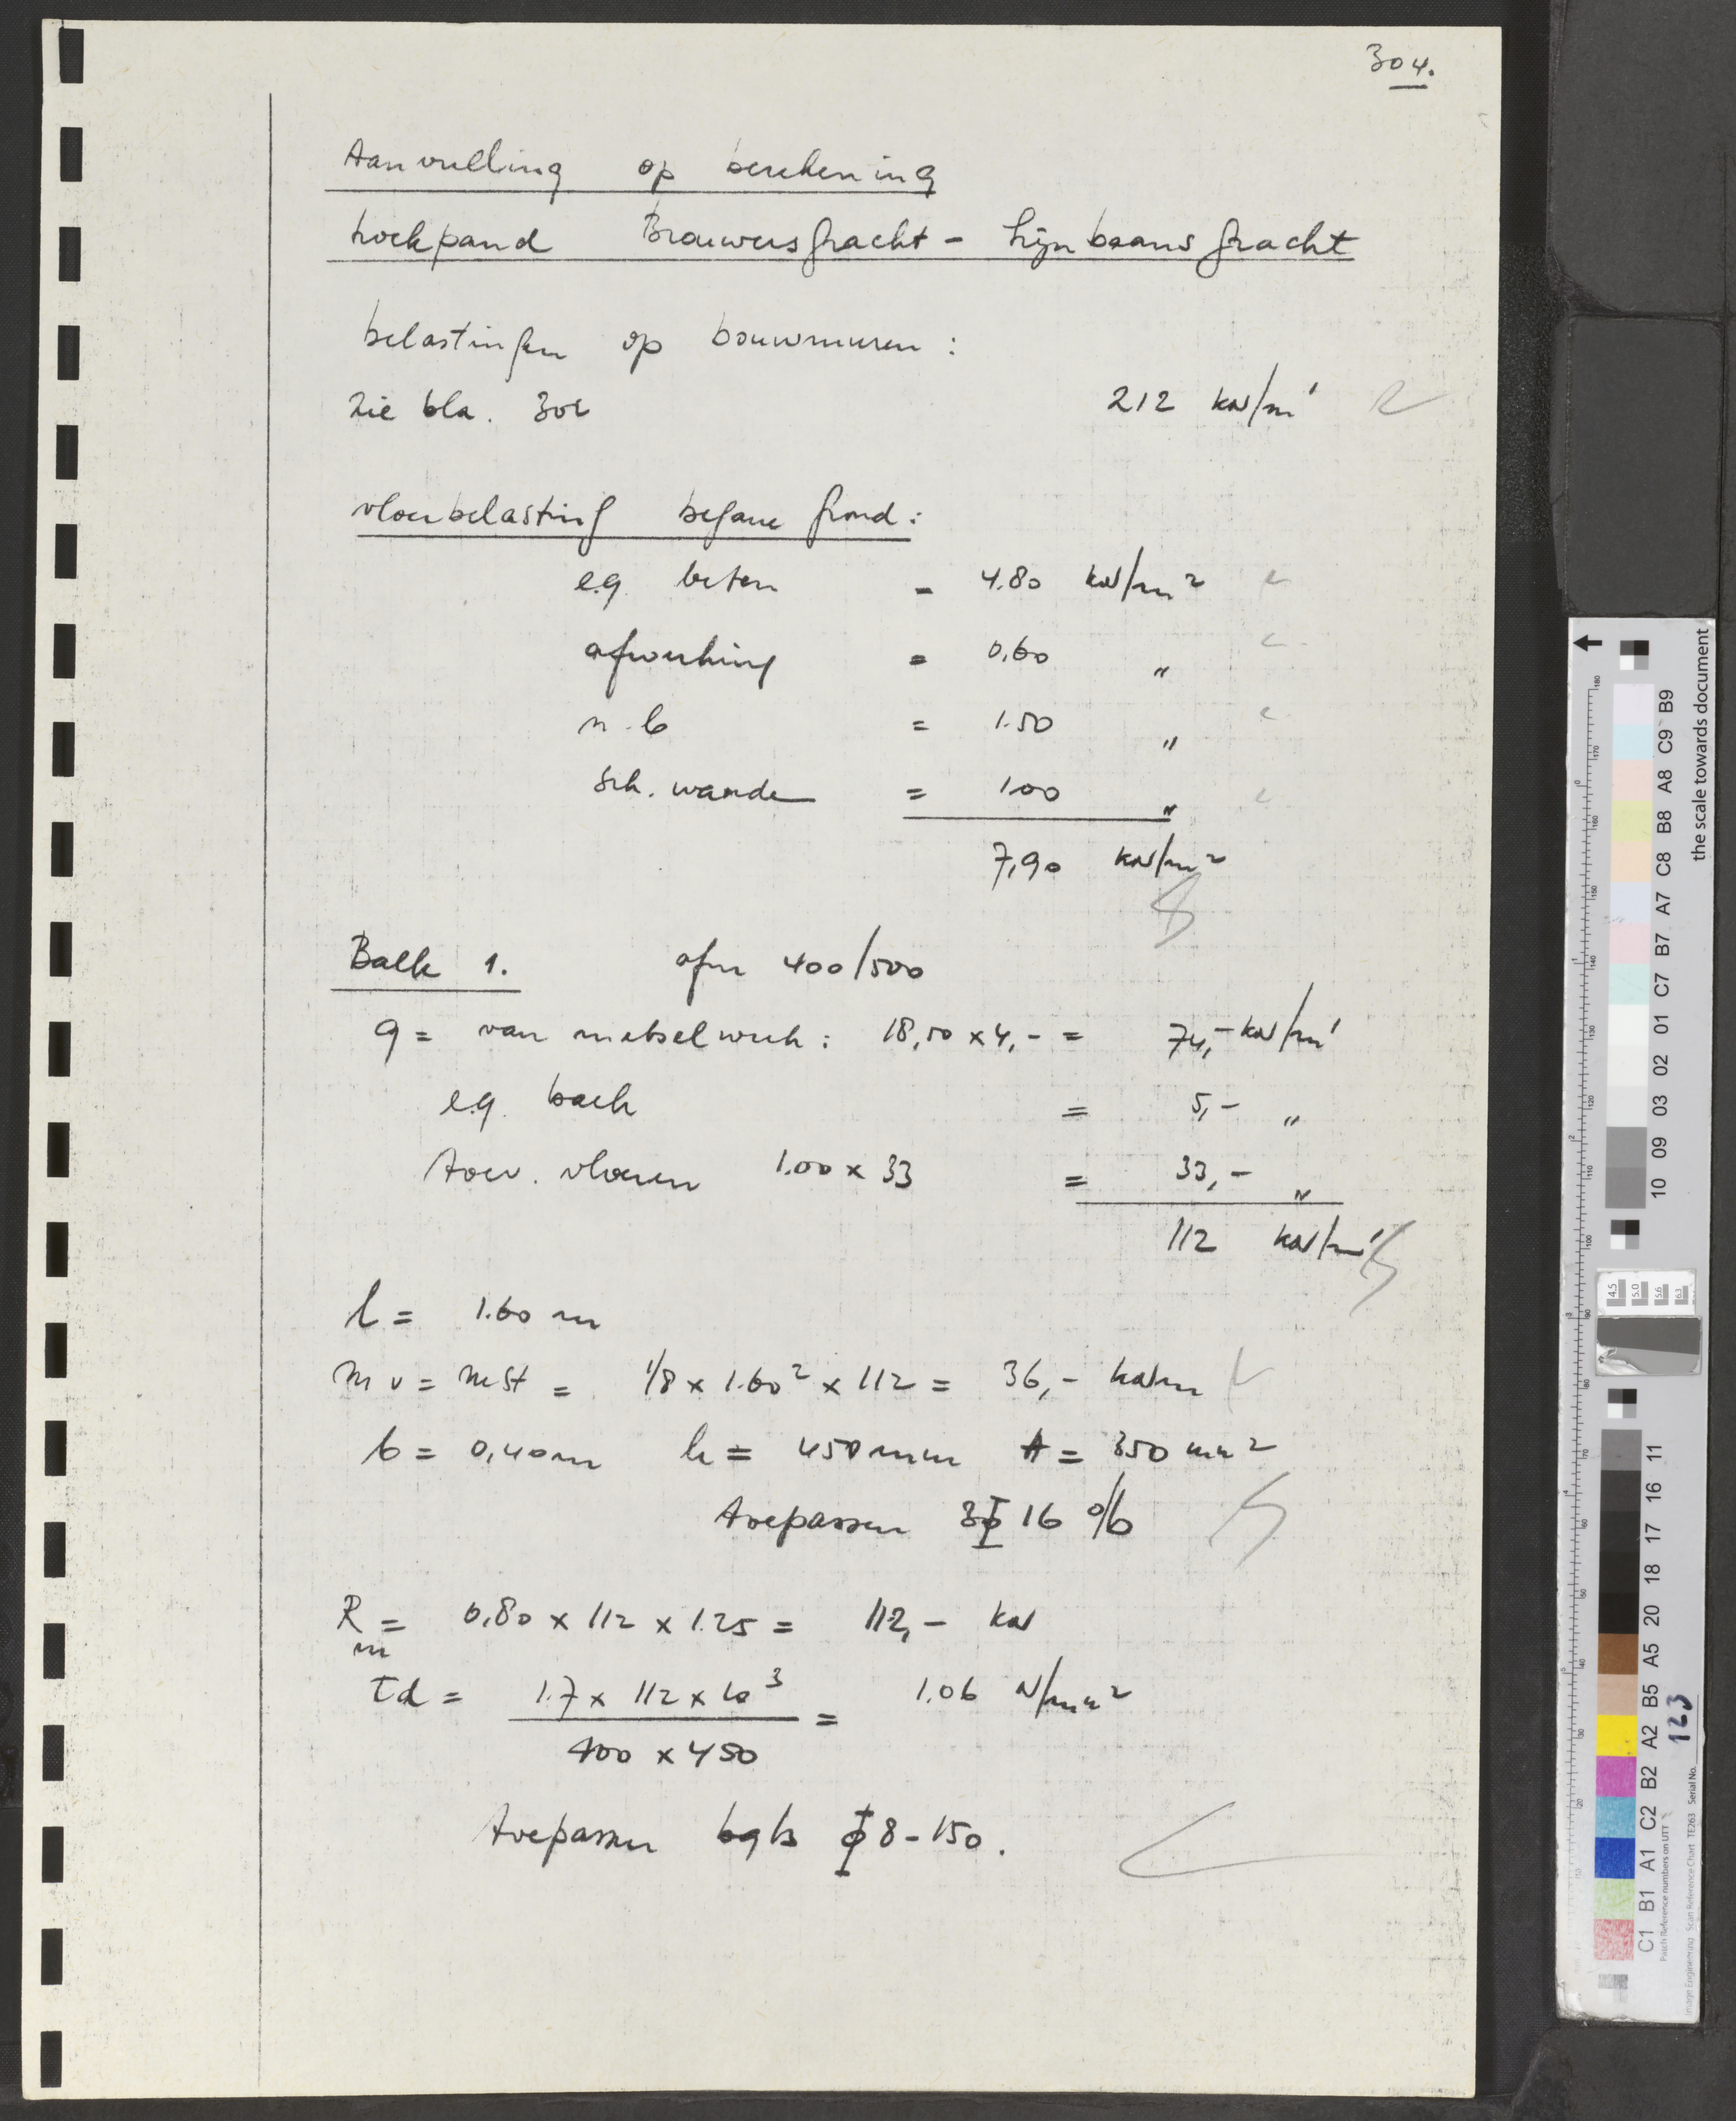 304.
Aanvulling op berekening
hoekpand Brouwersgracht - Lijnbaansgracht
belastingen op bouwmuren :
zie bla. 302 212 kN/m'
vloerbelasting begane grond :
e.g. beton = 4.80 kN/m²
afwerking = 0,60 "
n.b = 1.50 "
sch. wanden = 1.00 "
7,90 kN/m²
Balk 1. afm 400/500
q = van metselwerk : 18,50 x 4,- = 74,- kN/m'
e.g. balk = 5,- "
toev. vloeren 1.00 x 33 = 33,- "
112 kN/m'
l = 1.60 m
mv = mst = 1/8 x 1.60² x 112 = 36,- kNm
b = 0,40m h = 450mm A = 350 mm²
toepassen 3ϕ16 o/b
Rm = 0,80 x 112 x 1.25 = 112,- kN
τd = 1.7 x 112 x 10³ = 1.06 N/mm²
400 x 450
toepassen bgls ϕ8-150.
the scale towards document
C1 B1 A1 C2 B2 A2 B5 A5 20 18 17 16 11
10 09 03 02 01 C7 B7 A7 C8 B8 A8 C9 B9
Patch Reference numbers on UTT
Image Engineering Scan Reference Chart TE263 Serial No. 123